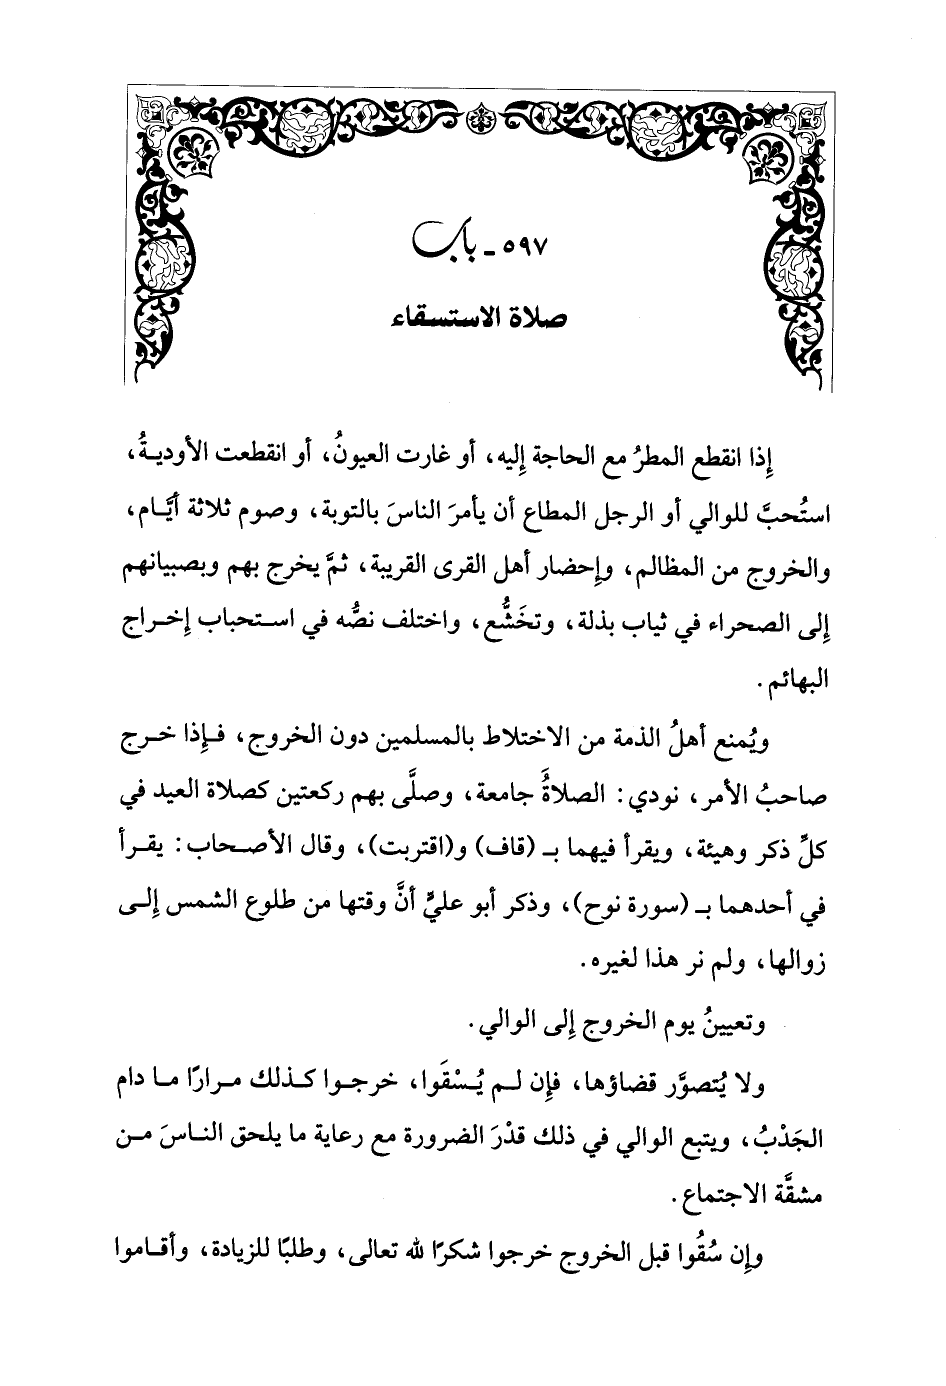 ٥٩٧ ـ باب
صلاة الاستسقاء
إذا انقطع المطرُ مع الحاجة إليه، أو غارت العيونُ، أو انقطعت الأوديةُ،
استُحبَّ للوالي أو الرجل المطاع أن يأمرَ الناسَ بالتوبة، وصوم ثلاثة أيَّام،
والخروج من المظالم، وإحضار أهل القرى القريبة، ثمَّ يخرج بهم وبصبيانهم
إلى الصحراء في ثياب بذلة، وتخَشُّع، واختلف نصُّه في استحباب إخراج
البهائم.
ويُمنع أهلُ الذمة من الاختلاط بالمسلمين دون الخروج، فإذا خرج
صاحبُ الأمر، نودي: الصلاةَُ جامعة، وصلَّى بهم ركعتين كصلاة العيد في
كلِّ ذكر وهيئة، ويقرأ فيهما بـ (قاف) و(اقتربت)، وقال الأصحاب: يقرأ
في أحدهما بـ (سورة نوح)، وذكر أبو عليٍّ أنَّ وقتها من طلوع الشمس إلى
زوالها، ولم نر هذا لغيره.
وتعيينُ يوم الخروج إلى الوالي.
ولا يُتصوَّر قضاؤها، فإن لم يُسْقَوا، خرجوا كذلك مرارًا ما دام
الجَدْبُ، ويتبع الوالي في ذلك قدْرَ الضرورة مع رعاية ما يلحق الناسَ من
مشقَّة الاجتماع.
وإن سُقُوا قبل الخروج خرجوا شكرًا لله تعالى، وطلبًا للزيادة، وأقاموا